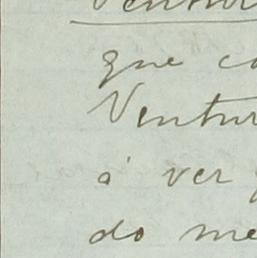 que co
Ventur
á ver
do me